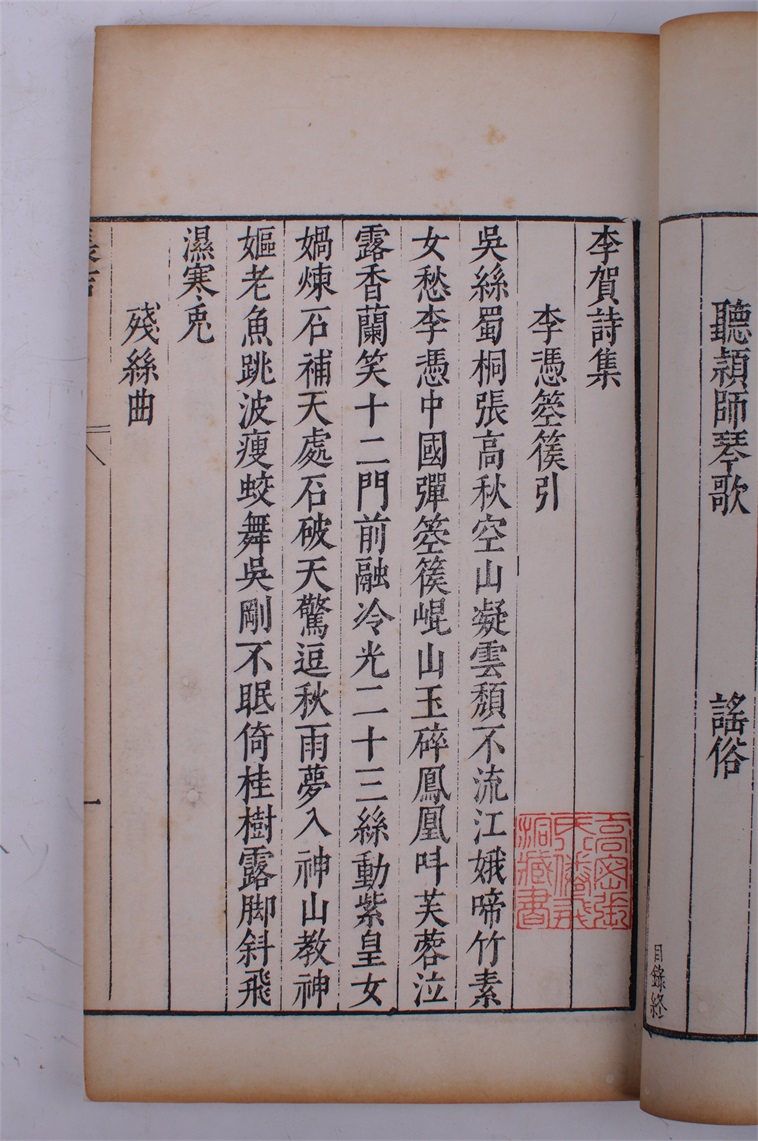 聽潁師琴歌 謠俗
目錄終
李賀詩集
李憑箜篌引
吳絲蜀桐張高秋空山凝雲頹不流江娥啼竹素
女愁李憑中國彈箜篌崐山玉碎鳳凰叫芙蓉泣
露香蘭笑十二門前融冷光二十三絲動紫皇女
媧煉石補天處石破天驚逗秋雨夢入神山教神
嫗老魚跳波瘦蛟舞吳剛不眠倚桂樹露脚斜飛
濕寒兎
殘絲曲
一